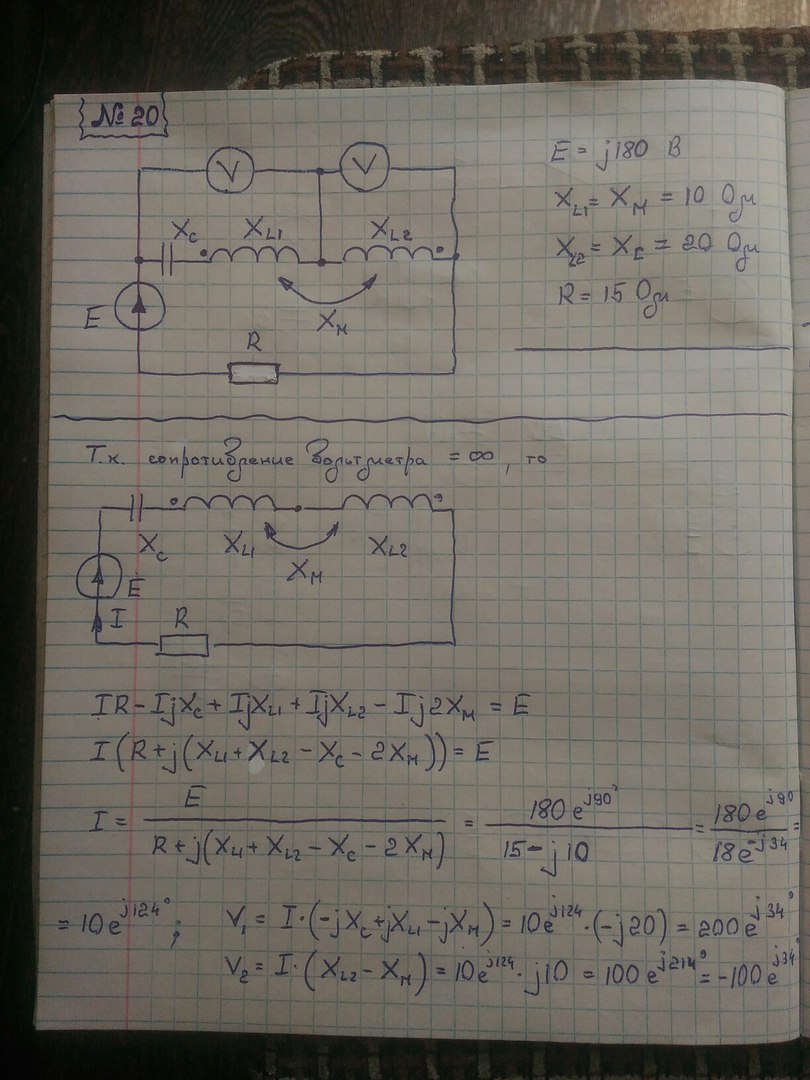 № 20
V V
E = j180 В
X_C X_L1 X_L2
X_L1 = X_M = 10 Ом
X_L2 = X_C = 20 Ом
E X_M
R = 15 Ом
R
Т.к. сопротивление вольтметра = ∞, то
X_C X_L1 X_L2
X_M
E
I R
IR - IjX_C + IjX_L1 + IjX_L2 - Ij2X_M = E
I(R + j(X_L1 + X_L2 - X_C - 2X_M)) = E
I = E / (R + j(X_L1 + X_L2 - X_C - 2X_M)) = 180e^{j90°} / (15 - j10) = 180e^{j90} / 18e^{-j34} =
= 10e^{j124°}; V_1 = I·(-jX_C + jX_L1 - jX_M) = 10e^{j124}·(-j20) = 200e^{j34°}
V_2 = I·(X_L2 - X_M) = 10e^{j124}·j10 = 100e^{j214°} = -100e^{j34°}